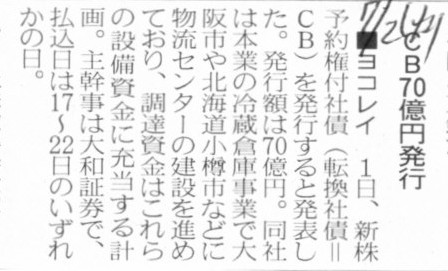 7/2(土)
CB70億円発行
■ヨコレイ　1日、新株
予約権付社債（転換社債＝
CB）を発行すると発表し
た。発行額は70億円。同社
は本業の冷蔵倉庫事業で大
阪市や北海道小樽市などに
物流センターの建設を進め
ており、調達資金はこれら
の設備資金に充当する計
画。主幹事は大和証券で、
払込日は17～22日のいずれ
かの日。